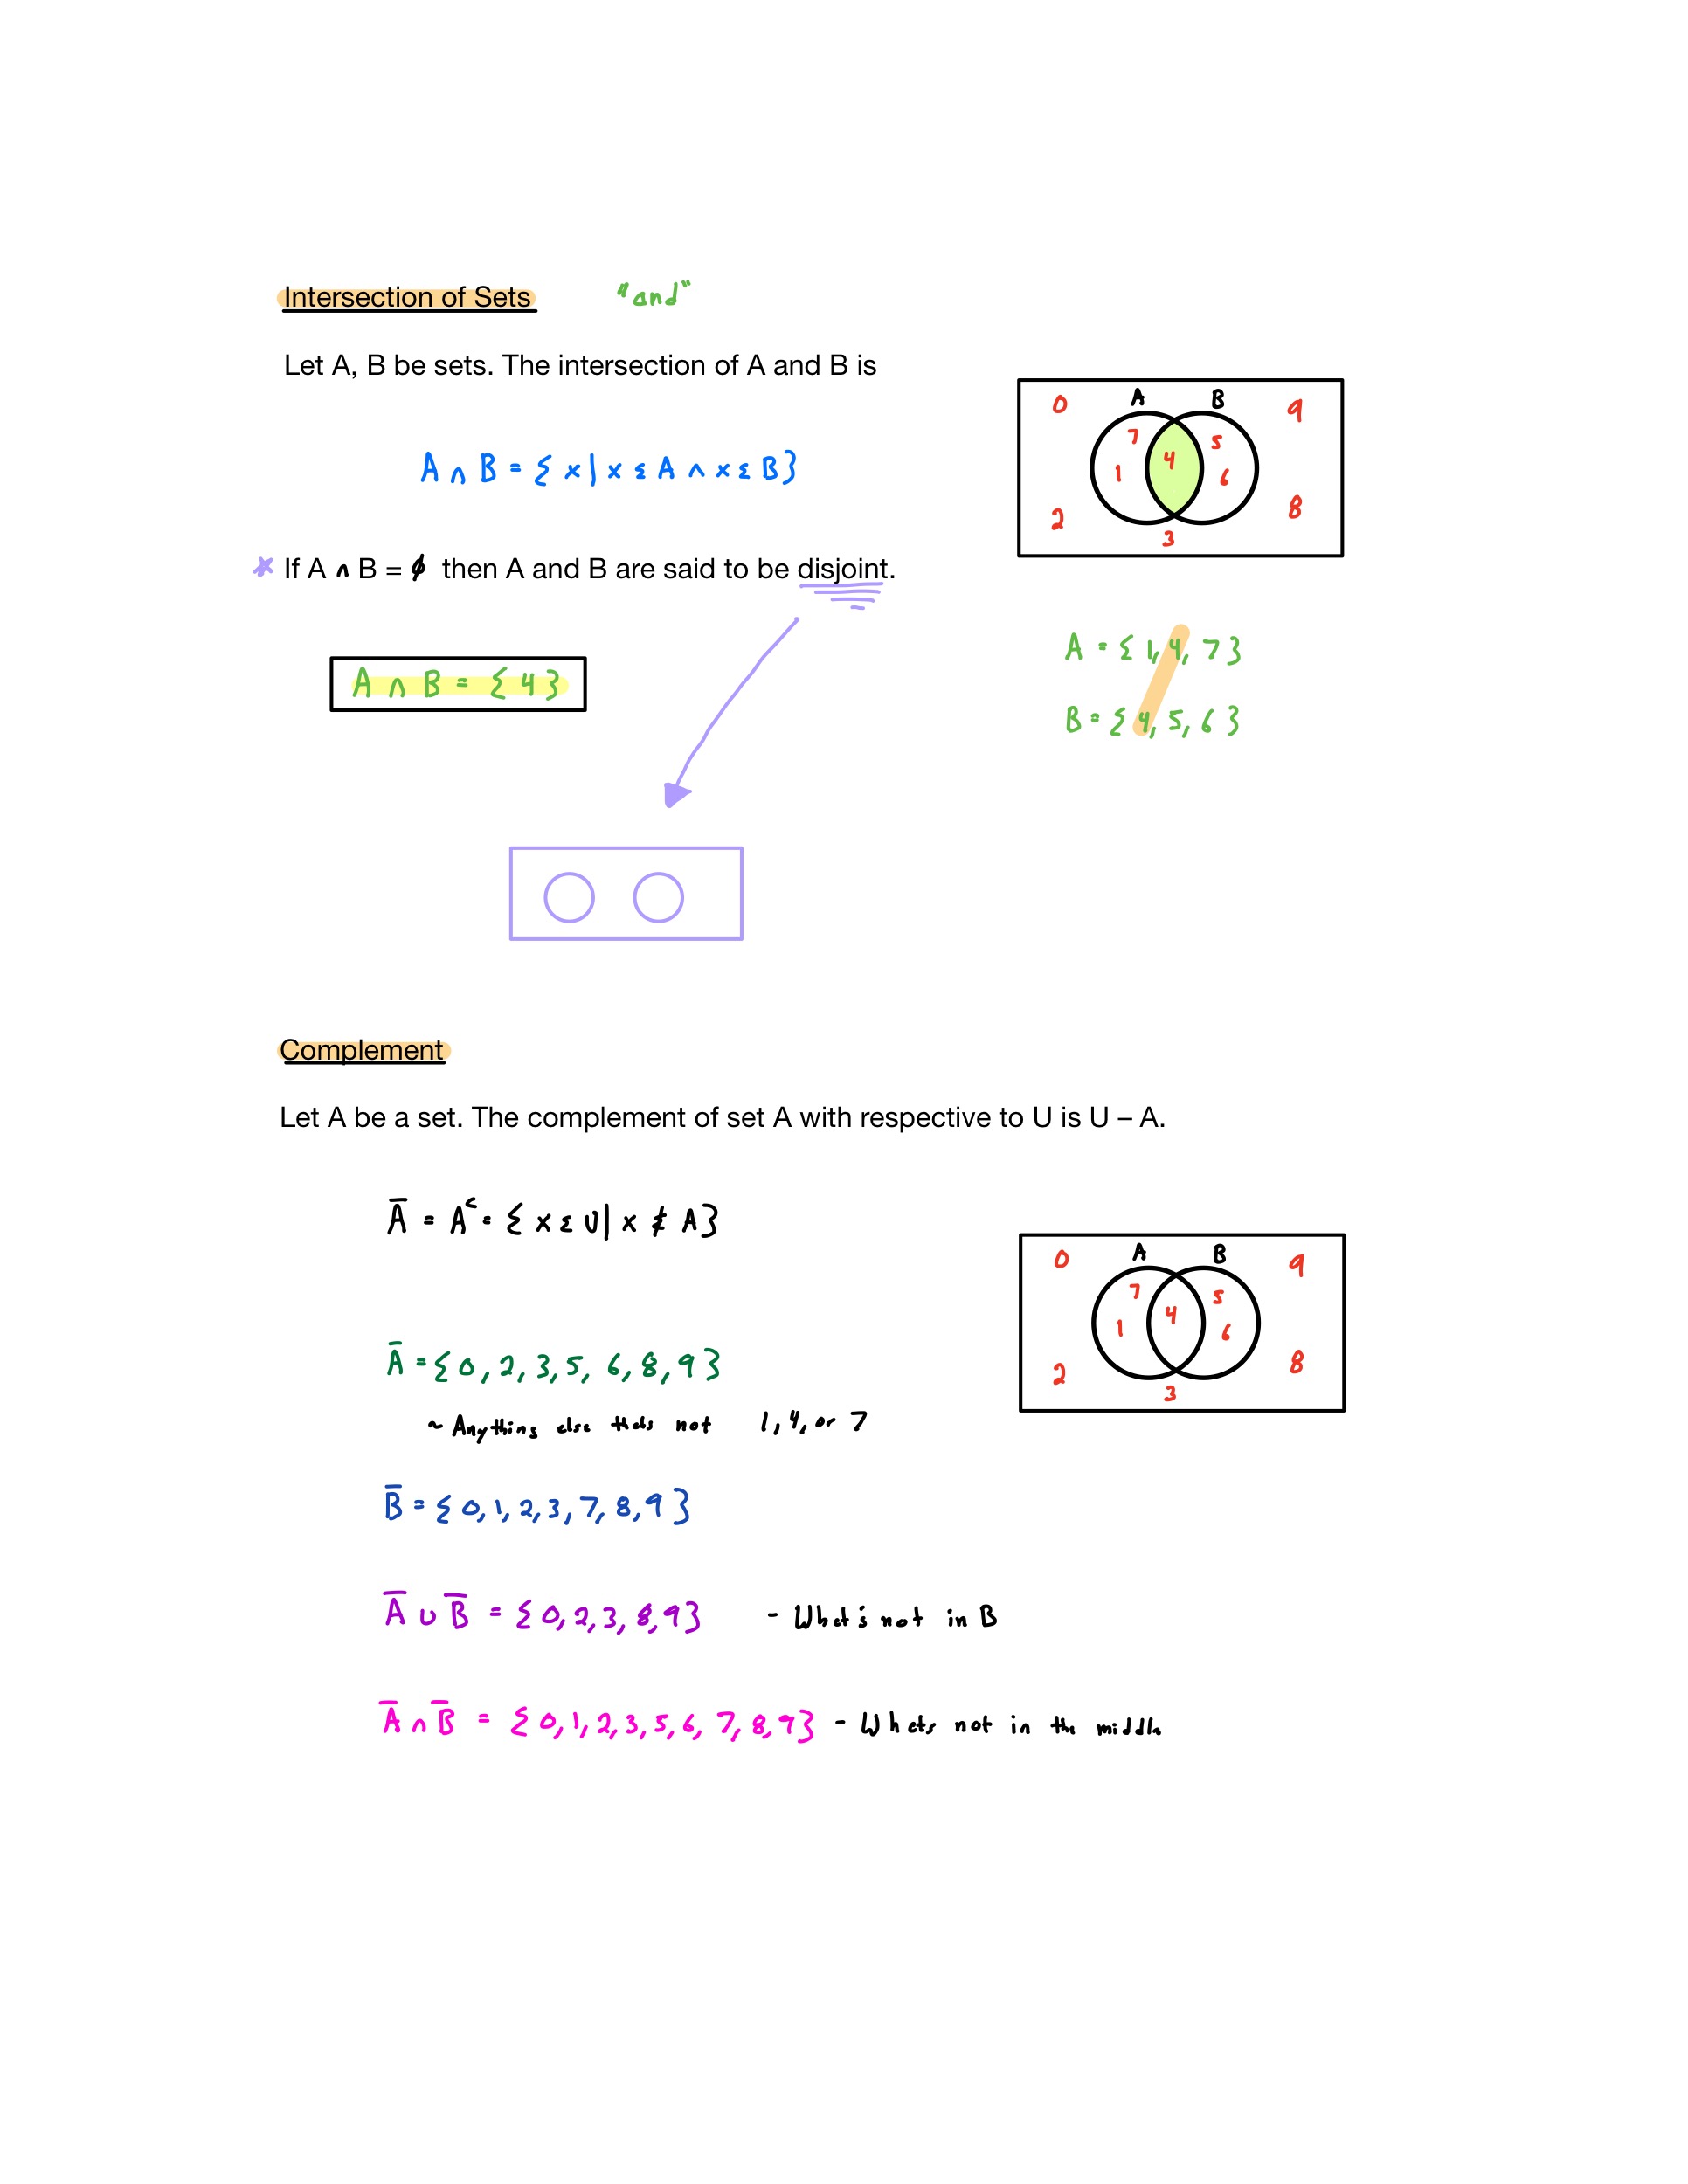 Intersection of Sets "and"
Let A, B be sets. The intersection of A and B is
A ∩ B = { x | x ε A ∧ x ε B }
0 A B 9
7 4 5
1 6
2 3 8
* If A ∩ B = ∅ then A and B are said to be disjoint.
A ∩ B = { 4 }
A = { 1, 4, 7 }
B = { 4, 5, 6 }
Complement
Let A be a set. The complement of set A with respective to U is U – A.
A̅ = Aᶜ = { x ε U | x ∉ A }
0 A B 9
7 4 5
1 6
2 3 8
A̅ = { 0, 2, 3, 5, 6, 8, 9 }
~ Anything else thats not 1, 4, or 7
B̅ = { 0, 1, 2, 3, 7, 8, 9 }
A̅ ∪ B̅ = { 0, 2, 3, 8, 9 } - What's not in B
A̅ ∩ B̅ = { 0, 1, 2, 3, 5, 6, 7, 8, 9 } - Whats not in the middle